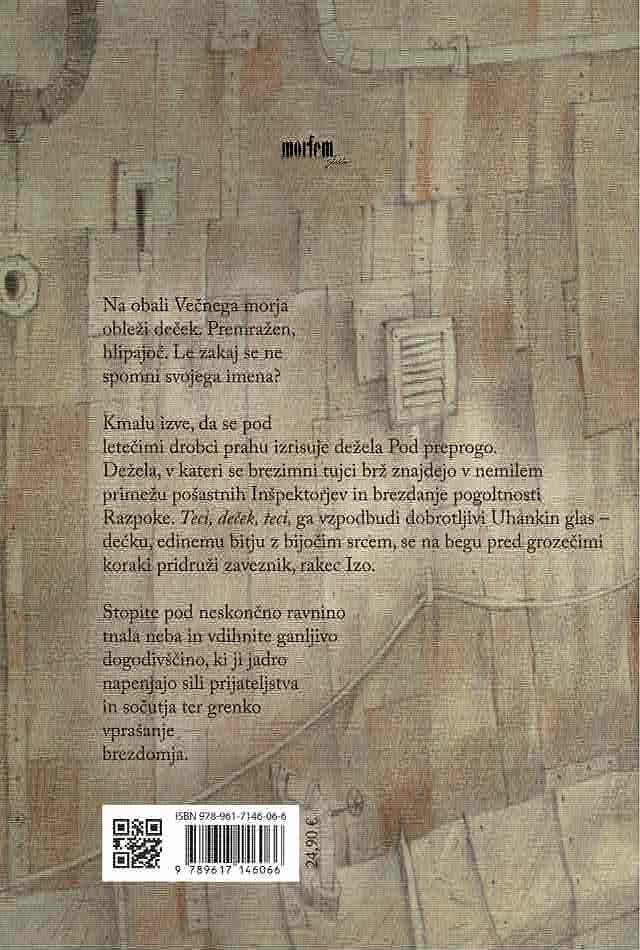 morfem
Na obali Večnega morja
obleži deček. Premražen,
hlipajoč. Le zakaj se ne
spomni svojega imena?
Kmalu izve, da se pod
letečimi drobci prahu izrisuje dežela Pod preprogo.
Dežela, v kateri se brezimni tujci brž znajdejo v nemilem
primežu pošastnih Inšpektorjev in brezdanje pogoltnosti
Razpoke. Teci, deček, teci, ga vzpodbudi dobrotljivi Uhankin glas –
dečku, edinemu bitju z bijočim srcem, se na begu pred grozečimi
koraki pridruži zaveznik, rakec Izo.
Stopite pod neskončno ravnino
tnala neba in vdihnite ganljivo
dogodivščino, ki ji jadro
napenjajo sili prijateljstva
in sočutja ter grenko
vprašanje
brezdomja.
ISBN 978-961-7146-06-6
9 789617 146066
24,90 €